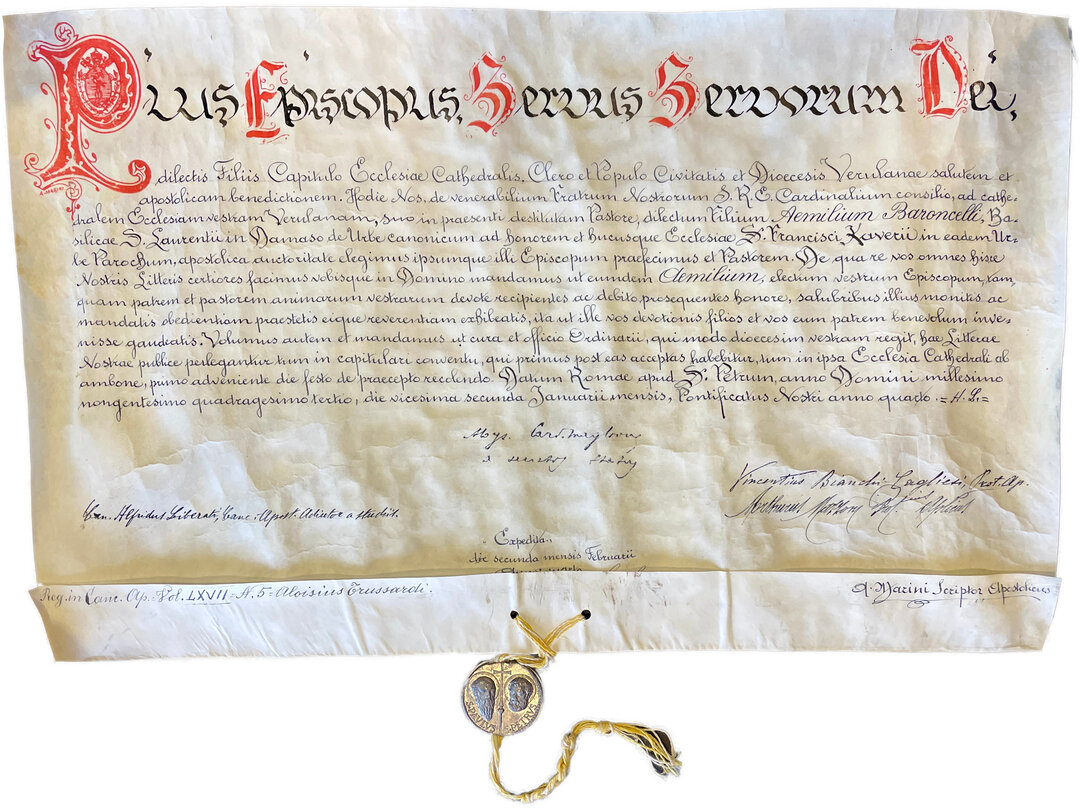 Pius Episcopus, Servus Servorum Dei,
dilectis Filiis Capitulo Ecclesiae Cathedralis, Clero et Populo Civitatis et Dioecesis Verulanae salutem et
apostolicam benedictionem. Hodie Nos, de venerabilium Fratrum Nostrorum S. R. E. Cardinalium consilio, ad cathe-
dralem Ecclesiam vestram Verulanam, suo in praesenti destitutam Pastore, dilectum Filium Aemilium Baroncelli, Ba-
silicae S. Laurentii in Damaso de Urbe canonicum ad honorem et hucusque Ecclesiae S. Francisci Xaverii in eadem Ur-
be Parochum, apostolica auctoritate elegimus ipsumque illi Episcopum praefecimus et Pastorem. De qua re vos omnes hisce
Nostris Litteris certiores facimus vobisque in Domino mandamus ut eundem Aemilium, electum vestrum Episcopum, tam-
quam patrem et pastorem animarum vestrarum devote recipientes ac debito prosequentes honore, salubribus illius monitis ac
mandatis obedientiam praestetis eique reverentiam exhibeatis, ita ut ille vos devotionis filios et vos eum patrem benevolum inve-
nisse gaudeatis. Volumus autem et mandamus ut cura et officio Ordinarii, qui modo dioecesim vestram regit, hae Litterae
Nostrae publice perlegantur tum in capitulari conventu, qui primus post eas acceptas habebitur, tum in ipsa Ecclesia Cathedrali ab
ambone, primo adveniente die festo de praecepto recolendo. Datum Romae apud S. Petrum, anno Domini millesimo
nongentesimo quadragesimo tertio, die vicesima secunda Januarii mensis, Pontificatus Nostri anno quarto. = A. Li =
Alys. Card. Maglione
a secretis
Vincentius Bianchi-Cagliesi, Prot. Ap.
Can. Alfridus Liberati, Canc. Apost. Adiutor a studiis.
Arthurus Mazzoni
Expedita
die secunda mensis Februarii
Reg. in Canc. Ap. Vol. LXVII = N. 5 = Aloisius Trussardi.
A. Marini Scriptor Apostolicus
S. PAVLVS S. PETRVS